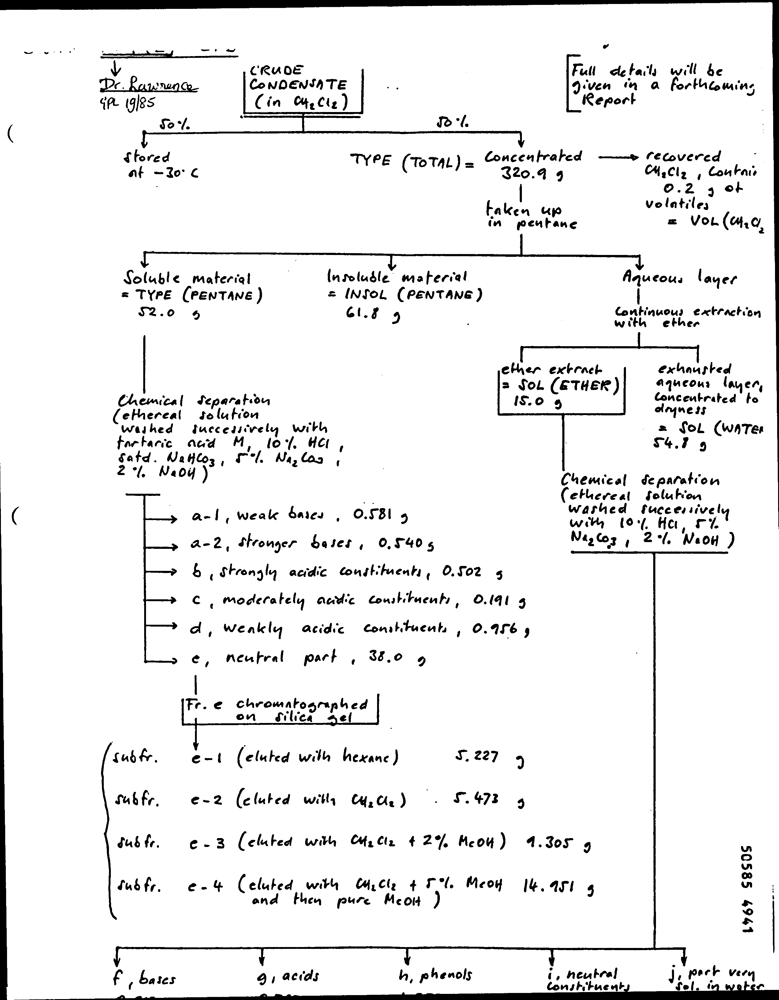 Dr. Lawrence
CRUDE
CONDENSATE
(in CH2Cl2)
Full details will be
given in a forthcoming
Report
50%
50%
stored
at -30°C
TYPE (TOTAL) = Concentrated
320.9 g
recovered
CH2Cl2, contain
0.2 g of
volatiles
= VOL (CH2Cl2
taken up
in pentane
Soluble material
= TYPE (PENTANE)
52.0 g
Insoluble material
= INSOL (PENTANE)
61.8 g
Aqueous layer
continuous extraction
with ether
ether extract
= SOL (ETHER)
15.0 g
exhausted
aqueous layer,
concentrated to
dryness
= SOL (WATER
54.8 g
Chemical separation
(ethereal solution
washed successively with
tartaric acid M, 10% HCl,
satd. NaHCO3, 5% Na2CO3,
2% NaOH)
Chemical separation
(ethereal solution
washed successively
with 10% HCl, 5%
Na2CO3, 2% NaOH)
a-1, weak bases, 0.581 g
a-2, stronger bases, 0.540 g
b, strongly acidic constituents, 0.502 g
c, moderately acidic constituents, 0.191 g
d, weakly acidic constituents, 0.956 g
e, neutral part, 38.0 g
Fr. e chromatographed
on silica gel
subfr. e-1 (eluted with hexane) 5.227 g
subfr. e-2 (eluted with CH2Cl2) 5.473 g
subfr. e-3 (eluted with CH2Cl2 + 2% MeOH) 9.305 g
subfr. e-4 (eluted with CH2Cl2 + 5% MeOH 14.951 g
and then pure MeOH)
50585 4941
f, bases
g, acids
h, phenols
i, neutral
constituents
j, part very
sol. in water